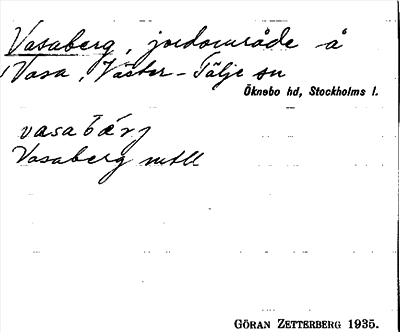 Vasaberg, jordområde å
Vasa, Väster-Tälje sn
Öknebo hd, Stockholms l.
vasabärj
Vasaberg mtll
GÖRAN ZETTERBERG 1935.